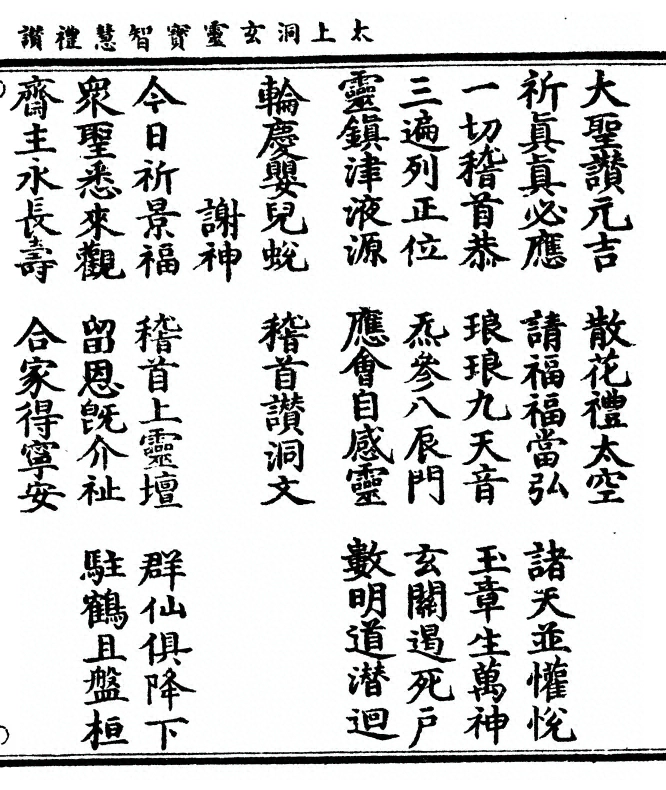 太上洞玄靈寶智慧禮讚
大聖讃元吉　散花禮太空
祈眞眞必應　請福福當弘　諸天並懽悅
一切稽首恭　琅琅九天音　玉章生萬神
三遍列正位　炁參八辰門　玄關遏死戶
靈鎮津液源　應會自感靈　數明道潜迴
輪慶嬰兒蛻　稽首讃洞文
謝神
今日祈景福　稽首上靈壇　群仙俱降下
衆聖悉來觀　留恩旣介祉　駐鶴且盤桓
齋主永長壽　合家得寧安